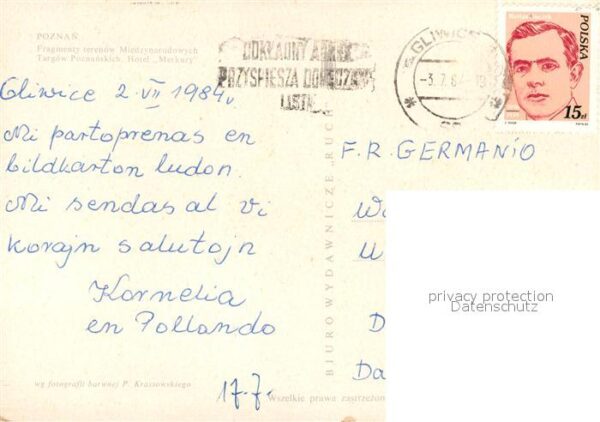 POZNAŃ
Fragmenty terenów Międzynarodowych
Targów Poznańskich. Hotel „Merkury”
DOKŁADNY ADRES
PRZYŚPIESZA DORĘCZENIE
LISTU
GLIWICE
-3.7.8
POLSKA
15 zł
Gliwice 2 VII 1984r.
Mi partoprenas en
bildkarton ludon.
Mi sendas al vi
korajn salutojn
Kornelia
en Pollando
17.7.
wg fotografii barwnej P. Krassowskiego
Wszelkie prawa zastrzeżone
BIURO WYDAWNICZE RUC
F.R. GERMANIO
W
U
D
Da
privacy protection
Datenschutz